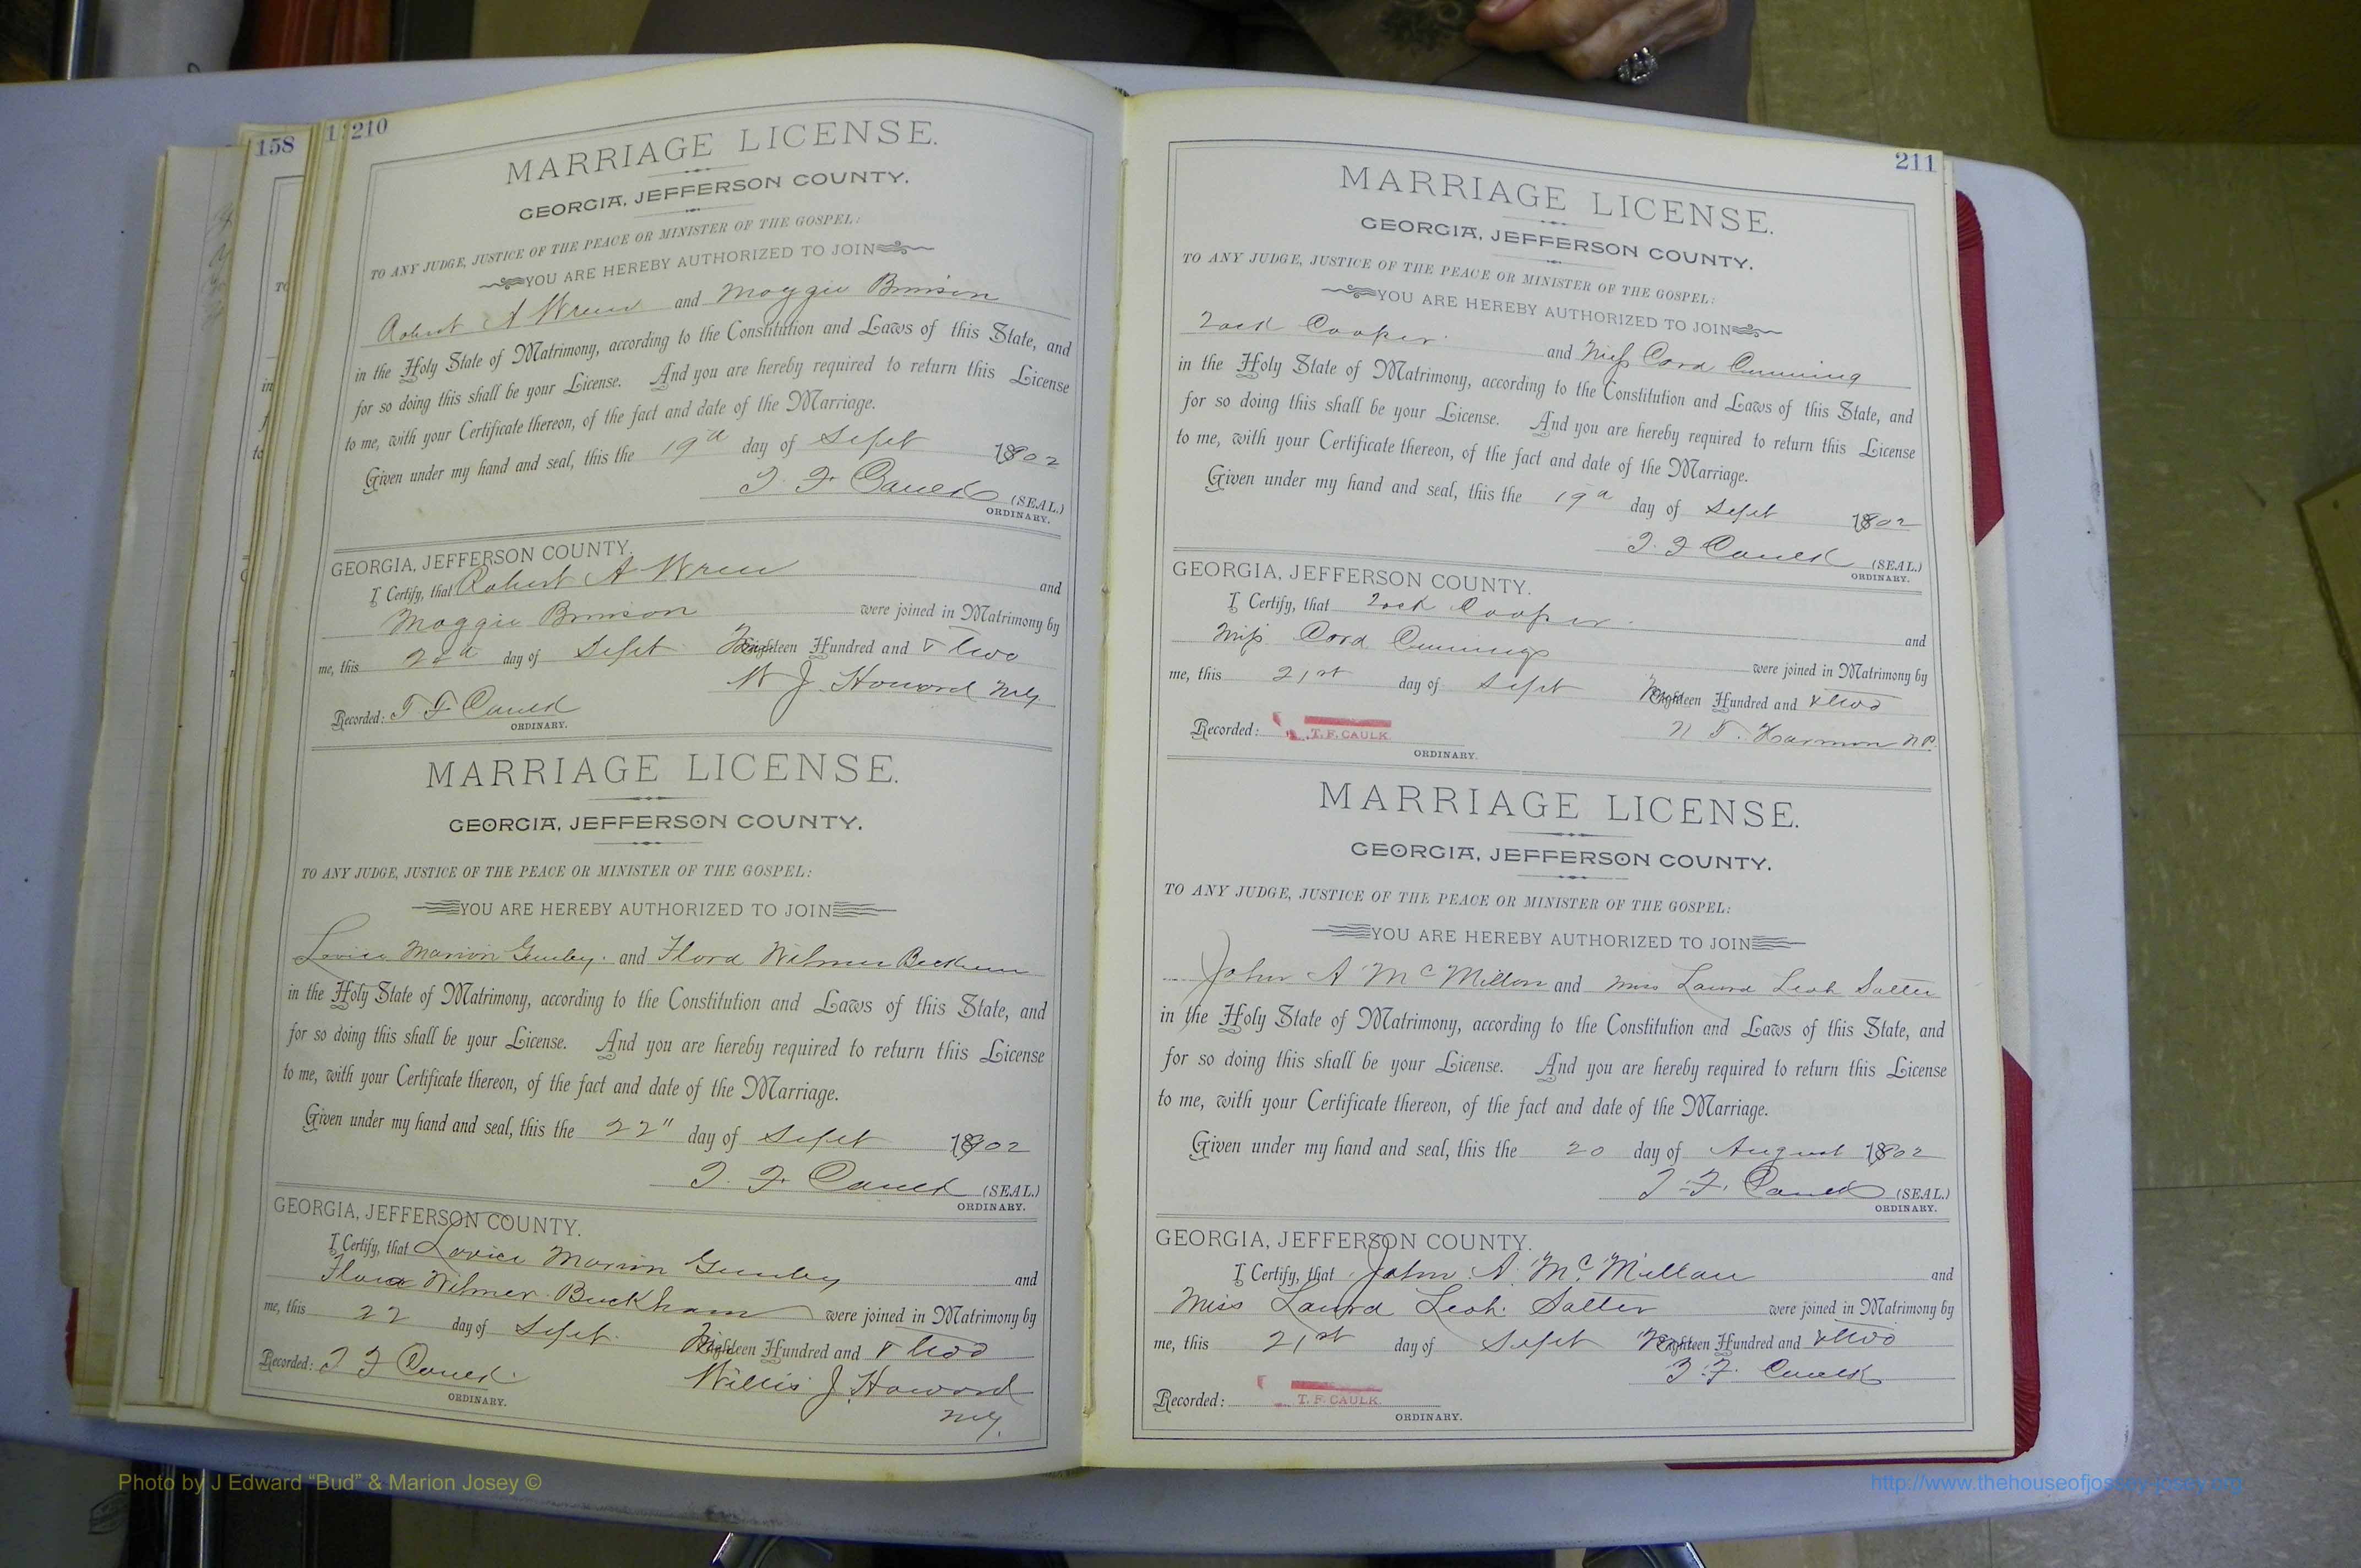 158
210
MARRIAGE LICENSE.
GEORGIA, JEFFERSON COUNTY.
TO ANY JUDGE, JUSTICE OF THE PEACE OR MINISTER OF THE GOSPEL:
YOU ARE HEREBY AUTHORIZED TO JOIN
Robert A Wren and Maggie Brinson
in the Holy State of Matrimony, according to the Constitution and Laws of this State, and
for so doing this shall be your License. And you are hereby required to return this License
to me, with your Certificate thereon, of the fact and date of the Marriage.
Given under my hand and seal, this the 19 day of Sept 1902
T. F. Caulk (SEAL.)
ORDINARY.
GEORGIA, JEFFERSON COUNTY.
I Certify, that Robert A Wren and
Maggie Brinson were joined in Matrimony by
me, this day of Sept Hundred and Two
W J. Howard M.G.
Recorded: T F Caulk
ORDINARY.
MARRIAGE LICENSE.
GEORGIA, JEFFERSON COUNTY.
TO ANY JUDGE, JUSTICE OF THE PEACE OR MINISTER OF THE GOSPEL:
YOU ARE HEREBY AUTHORIZED TO JOIN
Marion and Flora Wilmer
in the Holy State of Matrimony, according to the Constitution and Laws of this State, and
for so doing this shall be your License. And you are hereby required to return this License
to me, with your Certificate thereon, of the fact and date of the Marriage.
Given under my hand and seal, this the 22" day of Sept 1902
T. F. Caulk (SEAL.)
ORDINARY.
GEORGIA, JEFFERSON COUNTY.
I Certify, that Marion and
Flora Wilmer Buckham were joined in Matrimony by
me, this 22 day of Sept. Hundred and Two
Willis J. Howard
Recorded: T F Caulk
ORDINARY.
M.G.
211
MARRIAGE LICENSE.
GEORGIA, JEFFERSON COUNTY.
TO ANY JUDGE, JUSTICE OF THE PEACE OR MINISTER OF THE GOSPEL:
YOU ARE HEREBY AUTHORIZED TO JOIN
Zack Cooper and Miss Cora Cumming
in the Holy State of Matrimony, according to the Constitution and Laws of this State, and
for so doing this shall be your License. And you are hereby required to return this License
to me, with your Certificate thereon, of the fact and date of the Marriage.
Given under my hand and seal, this the 19 day of Sept 1902
T. F Caulk (SEAL.)
ORDINARY.
GEORGIA, JEFFERSON COUNTY.
I Certify, that Zack Cooper and
Miss Cora Cummings were joined in Matrimony by
me, this 21st day of Sept Hundred and two
N. T. Harmon N.P.
Recorded: T. F. CAULK.
ORDINARY.
MARRIAGE LICENSE.
GEORGIA, JEFFERSON COUNTY.
TO ANY JUDGE, JUSTICE OF THE PEACE OR MINISTER OF THE GOSPEL:
YOU ARE HEREBY AUTHORIZED TO JOIN
John A McMillan and Miss Laura Leah Salter
in the Holy State of Matrimony, according to the Constitution and Laws of this State, and
for so doing this shall be your License. And you are hereby required to return this License
to me, with your Certificate thereon, of the fact and date of the Marriage.
Given under my hand and seal, this the 20 day of August 1902
T. F. Caulk (SEAL.)
ORDINARY.
GEORGIA, JEFFERSON COUNTY.
I Certify, that John A. McMillan and
Miss Laura Leah. Salter were joined in Matrimony by
me, this 21st day of Sept Hundred and two
T. F. Caulk
Recorded: T. F. CAULK.
ORDINARY.
Photo by J Edward “Bud” & Marion Josey ©
http://www.thehouseofjossey-josey.org